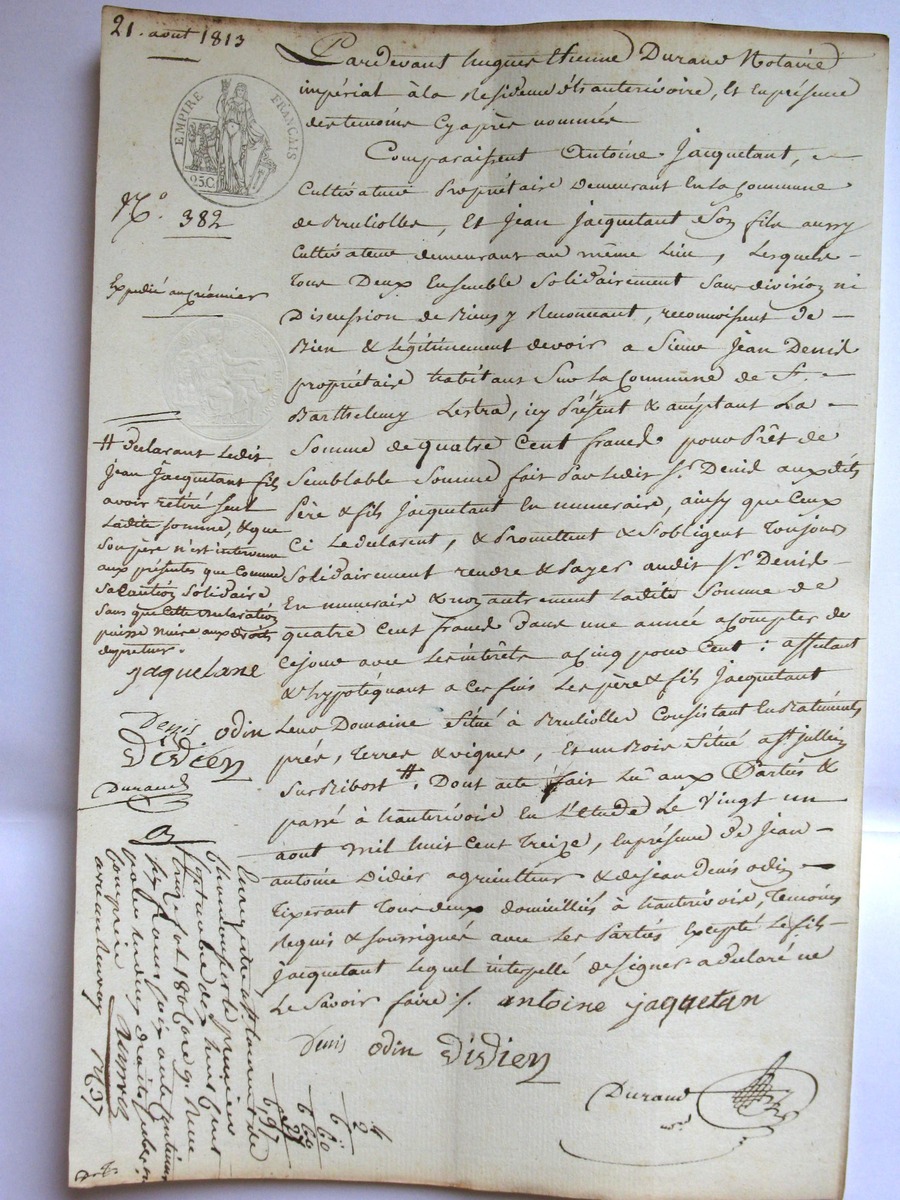 21. aout 1813
EMPIRE FRANÇAIS
25 C
N.o 382
Expedié au créancier
Pardevant hugues Etienne Durand Notaire
impérial à la Residence d'hauterivoire, Et en présence
des temoins Cy après nommés
Comparaissent Antoine Jacquetant,
Cultivateur Propriétaire demeurant En la Commune
de Brulliolles, Et Jean Jacquetant Son fils aussy
Cultivateur demeurant au même Lieu, Lesquels
Tous Deux Ensemble Solidairement Sans division ni
Discussion de Biens y Renonceant, reconnoissent de
Bien & Légitimement devoir a Sieur Jean Denis
propriétaire habitant Sur La Commune de St.
Barthelemy Lestra, icy Présent & acceptant La
Somme de quatre Cent francs pour Prêt de
Semblable Somme fait Par Ledit Sr. Denis auxdits
Père & fils Jacquetant En numeraire, ainsy que Ceux
Ci Le declarent, & Promettent & S'obligent Toujours
Solidairement rendre & Payer audit Sr. Denis
En numeraire & non autrement Ladite Somme de
quatre Cent francs Dans une année a Compter de
Ce jour avec Les interêts a Cinq pour Cent : affectant
& hypotéquant a Ces fins Les père & fils Jacquetant
Leur Domaine Situé à Brulliolles Consistant En Batiments
prés, Terres & vignes, Et un Bois Situé a St. jullien
Sur Bibost #. Dont acte fait Lu aux Parties &
passé à hauterivoire En L'étude Le Vingt un
aout Mil huit Cent Treize, En présence de Jean
antoine Didier agriculteur & de jean Denis odin
Tixerant Tous deux domiciliés à hauterivoire, Temoins
Requis & soussignés avec Les Parties Excepté Le fils
Jacquetant Lequel interpellé de signer a declaré ne
Le Savoir faire ./.
antoine jaquetan
Denis odin Didier
Durand
# declarant Ledit
Jean Jacquetant fils
avoir retiré seul
Ladite somme, & que
Son père n'est intervenu
aux présentes que Comme
Sa Caution Solidaire
Sans que Cette declaration
puisse Nuire aux droits
du prêteur.
jaquetane
Denis odin
Didier
Durand
Enregistré à St Laurent de
Chamousset le premier
Septembre 1813
Reçu quatre francs
6 "
" 60
6 60
6,97